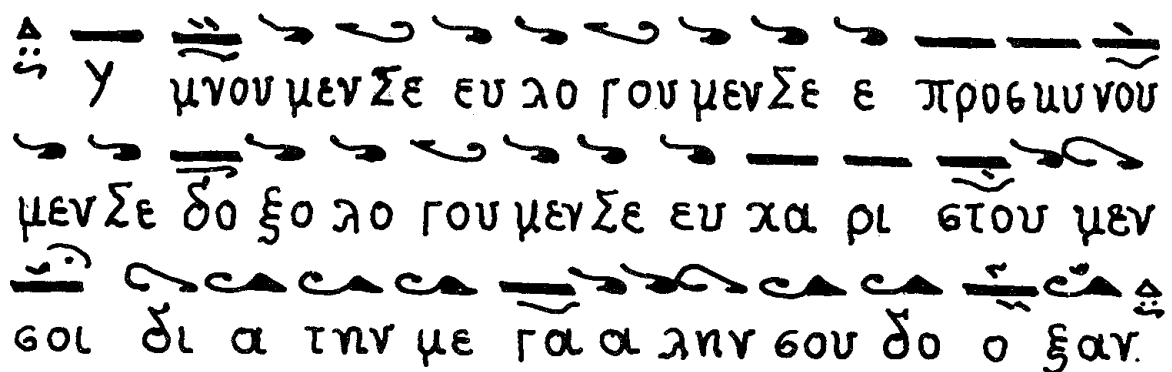 Υ μνου μεν Σε ευ λο γου μεν Σε ε προσ κυ νου
μεν Σε δο ξο λο γου μεν Σε ευ χα ρι στου μεν
σοι δι α την με γα α λην σου δο ο ξαν.